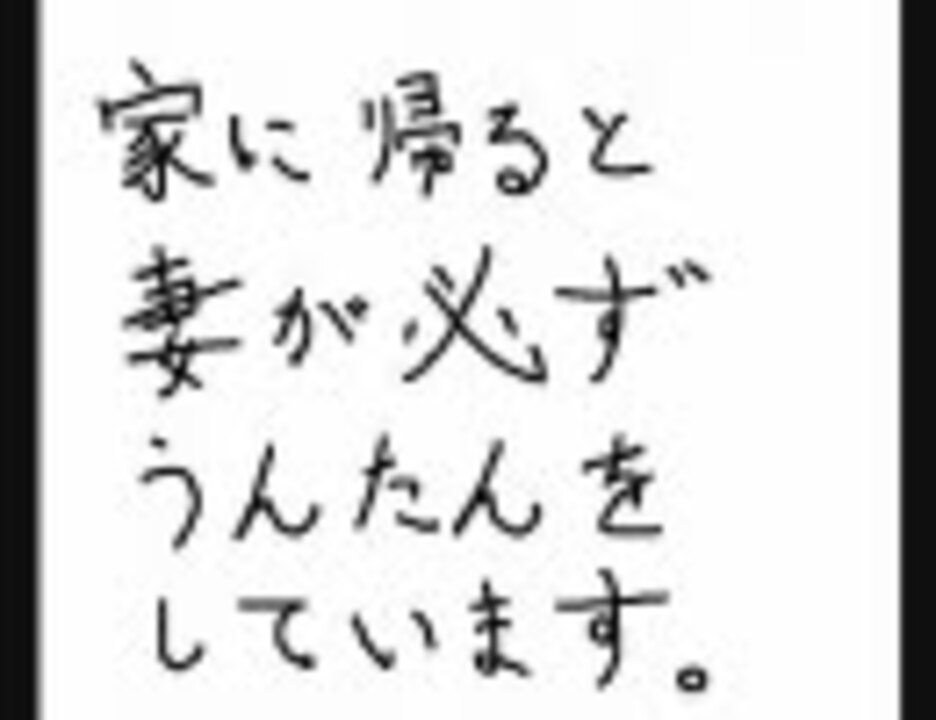 家に帰ると
妻が必ず
うんたんを
しています。